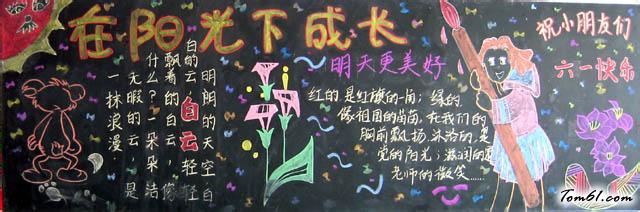 在阳光下成长
明朗的天空白
白的云,白云轻轻
飘着的白云,像
什么?一朵朵洁
无暇的云,是
一抹浪漫.
明天更美好
红的是红旗的一角;绿的
像祖国的 在我们的
胸前飘扬,沐浴的是
党的阳光;滋润的是
老师的微笑……
祝小朋友们
六一快乐
Tom61.com